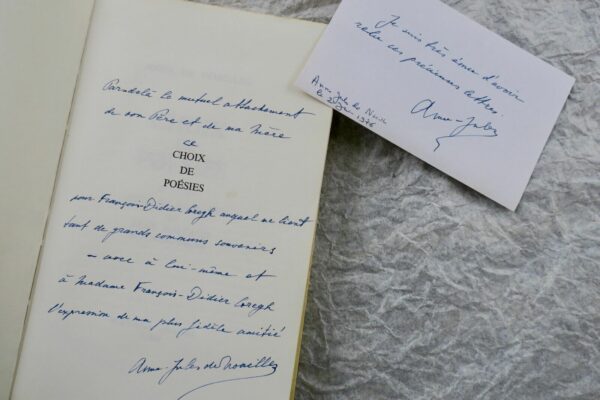 Par delà le mutuel attachement
de son Père et de ma Mère
ce
CHOIX
DE
POÉSIES
pour François-Didier Gregh auquel me lient
tant de grands communs souvenirs
– avec à lui-même et
à Madame François-Didier Gregh
l'expression de ma plus fidèle amitié
Anne-Jules de Noailles
Je suis très émue d'avoir
relu ces précieuses lettres
Anne-Jules
Anne Jules de Noailles
le 1976